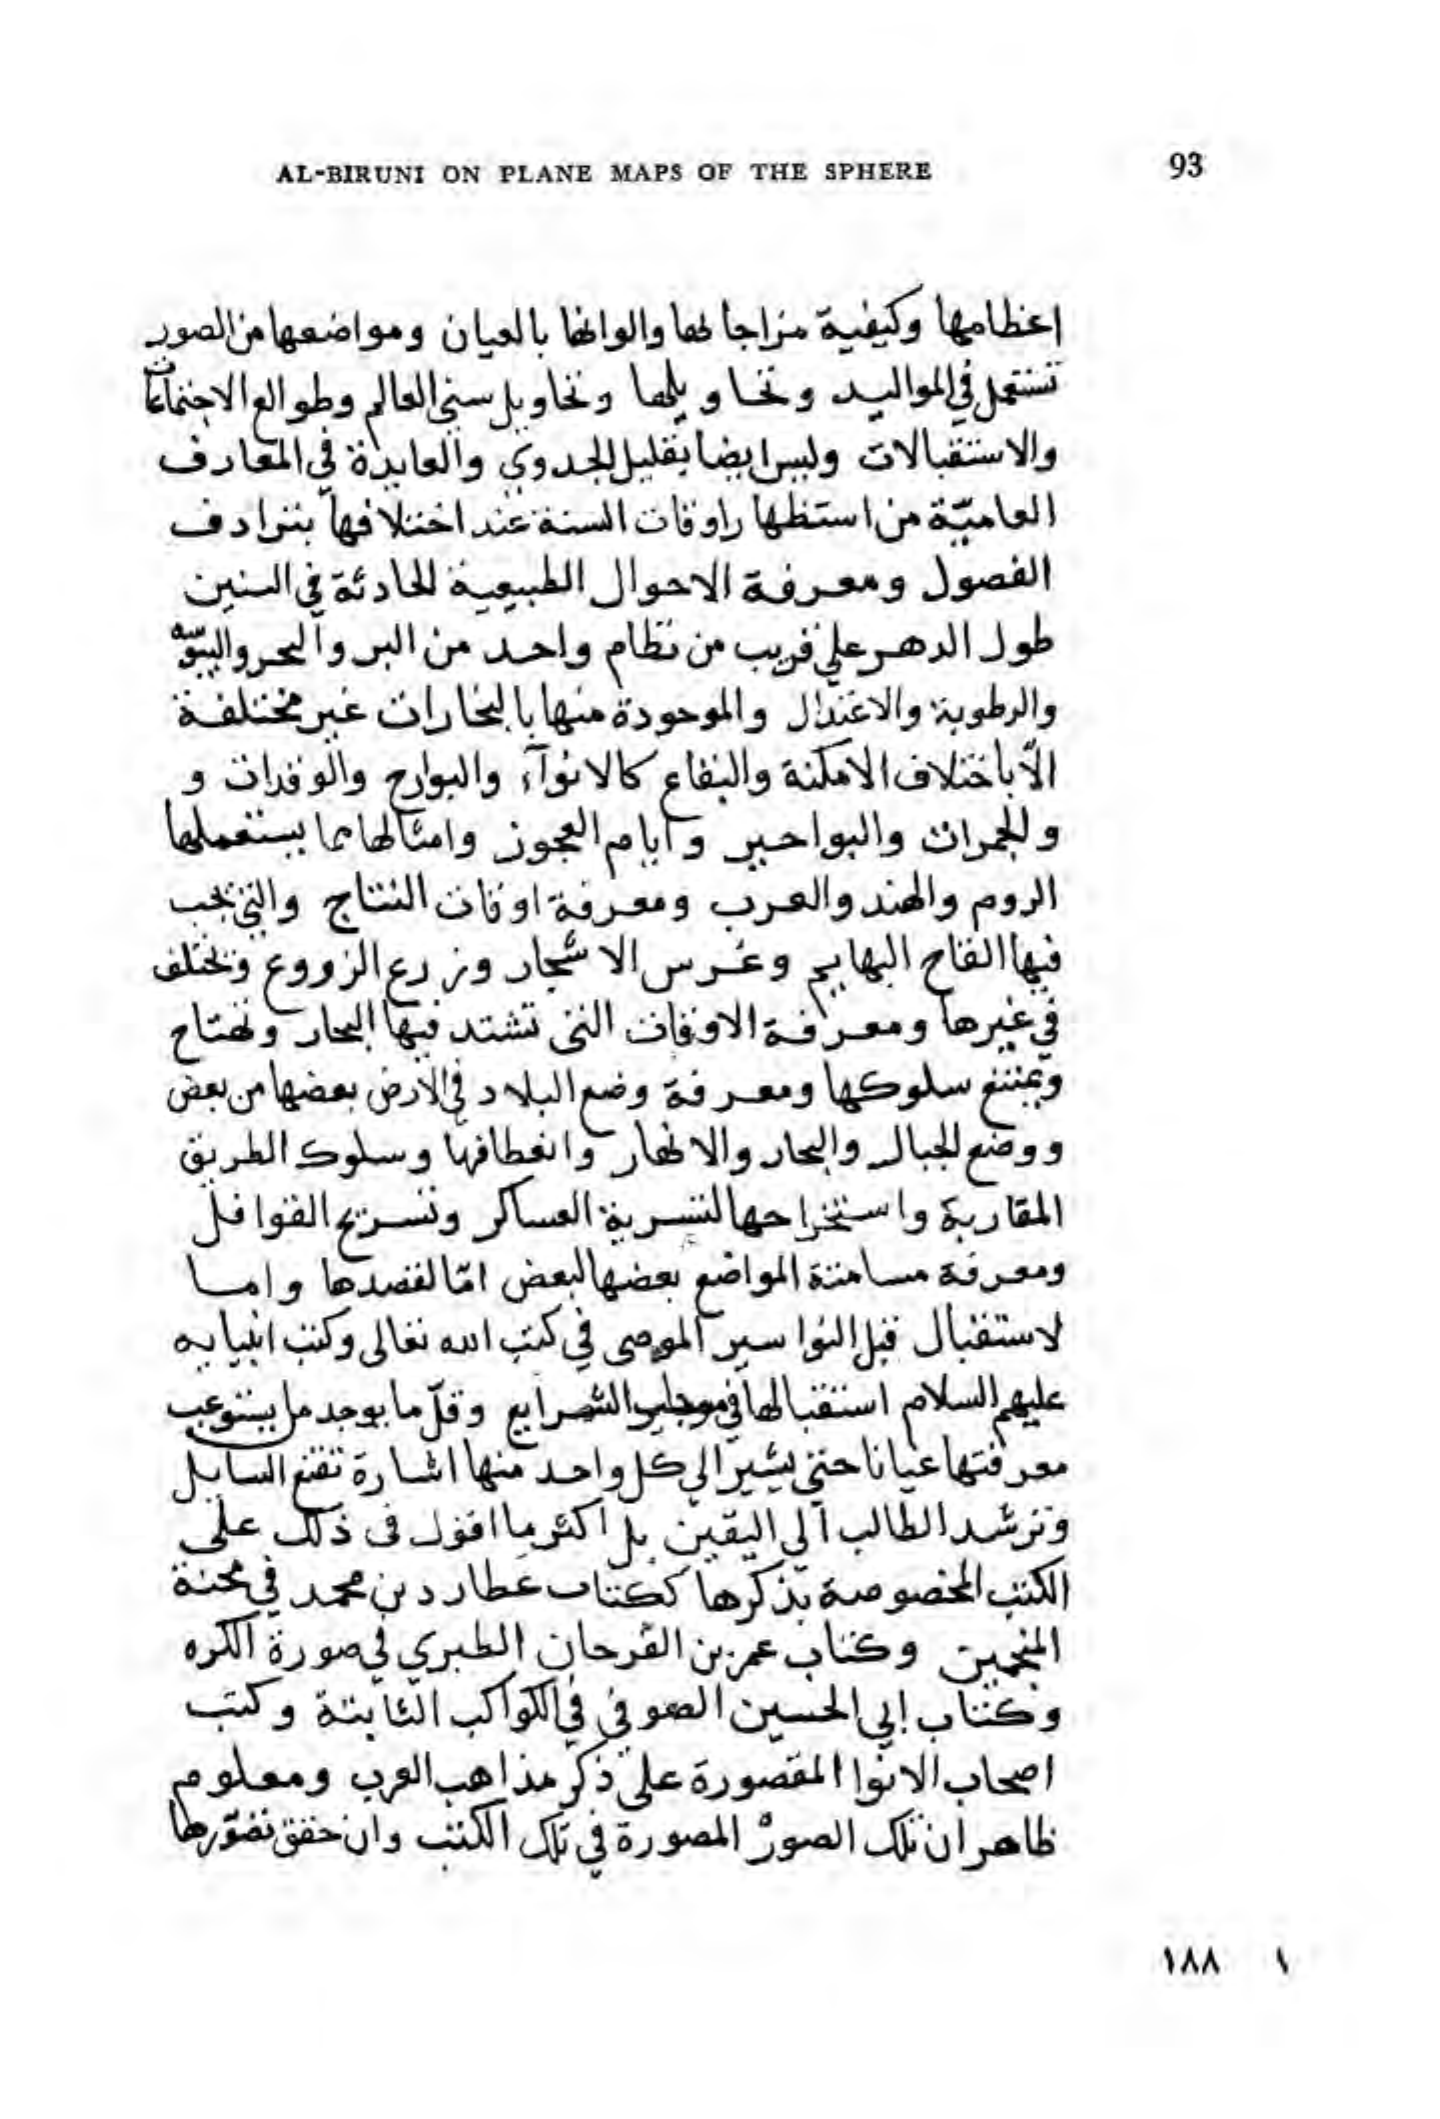 AL-BIRUNI ON PLANE MAPS OF THE SPHERE 93
اعظامها وكيفية مزاجاتها والوانها بالعيان ومواضعها من الصور
تستعمل في المواليد وتحاويلها وتحاويل سني العالم وطوالع الاجتماعات
والاستقبالات وليس ايضا بقليل الجدوي والعايدة في المعارف
العاميّة من استظهار اوقات السنة عند اختلافها بترادف
الفصول ومعرفة الاحوال الطبيعية الحادثة في السنين
طول الدهر علي قريب من نظام واحد من البر والبحر واليبوسه
والرطوبة والاعتدال والموجودة منها بالبخارات غير مختلفة
الّا باختلاف الامكنة والبقاع كالانوآء والبوارح والوقدات و
والجمرات والبواحير وايام العجوز وامثالها مما يستعملها
الروم والهند والعرب ومعرفة اوقات النتاج والتي يجب
فيها القاح البهايم وغرس الاشجار وزرع الزروع وتختلف
في غيرها ومعرفة الاوقات التى تشتد فيها البحار وتهتاج
ويمتنع سلوكها ومعرفة وضع البلاد في الارض بعضها من بعض
ووضع الجبال والبحار والانهار وانعطافها وسلوك الطريق
المقاربة واستخراجها لتسرية العساكر وتسريح القوافل
ومعرفة مسامتة المواضع بعضها لبعض امّا لقصدها واما
لاستقبال قبل النواسير الموصى في كتب الله تعالى وكتب انبيايه
عليهم السلام استقبالها في مواجب الشرايع وقلّ ما يوجد من يستوعب
معرفتها عيانا حتي يشير الي كل واحد منها اشارة تقنع السايل
وترشد الطالب الي اليقين بل اكثر ما اقول فى ذلك على
الكتب المخصوصة بذكرها ككتاب عطارد بن محمد في محنة
المنجمين وكتاب عمر بن الفرحان الطبري في صورة الكره
وكتاب ابي الحسين الصوفي في الكواكب الثابتة وكتب
اصحاب الانوا المقصورة علي ذكر مذاهب العرب ومعلوم
ظاهر ان تلك الصور المصورة في تلك الكتب وان حقق تصوّرها
١٨٨ ١